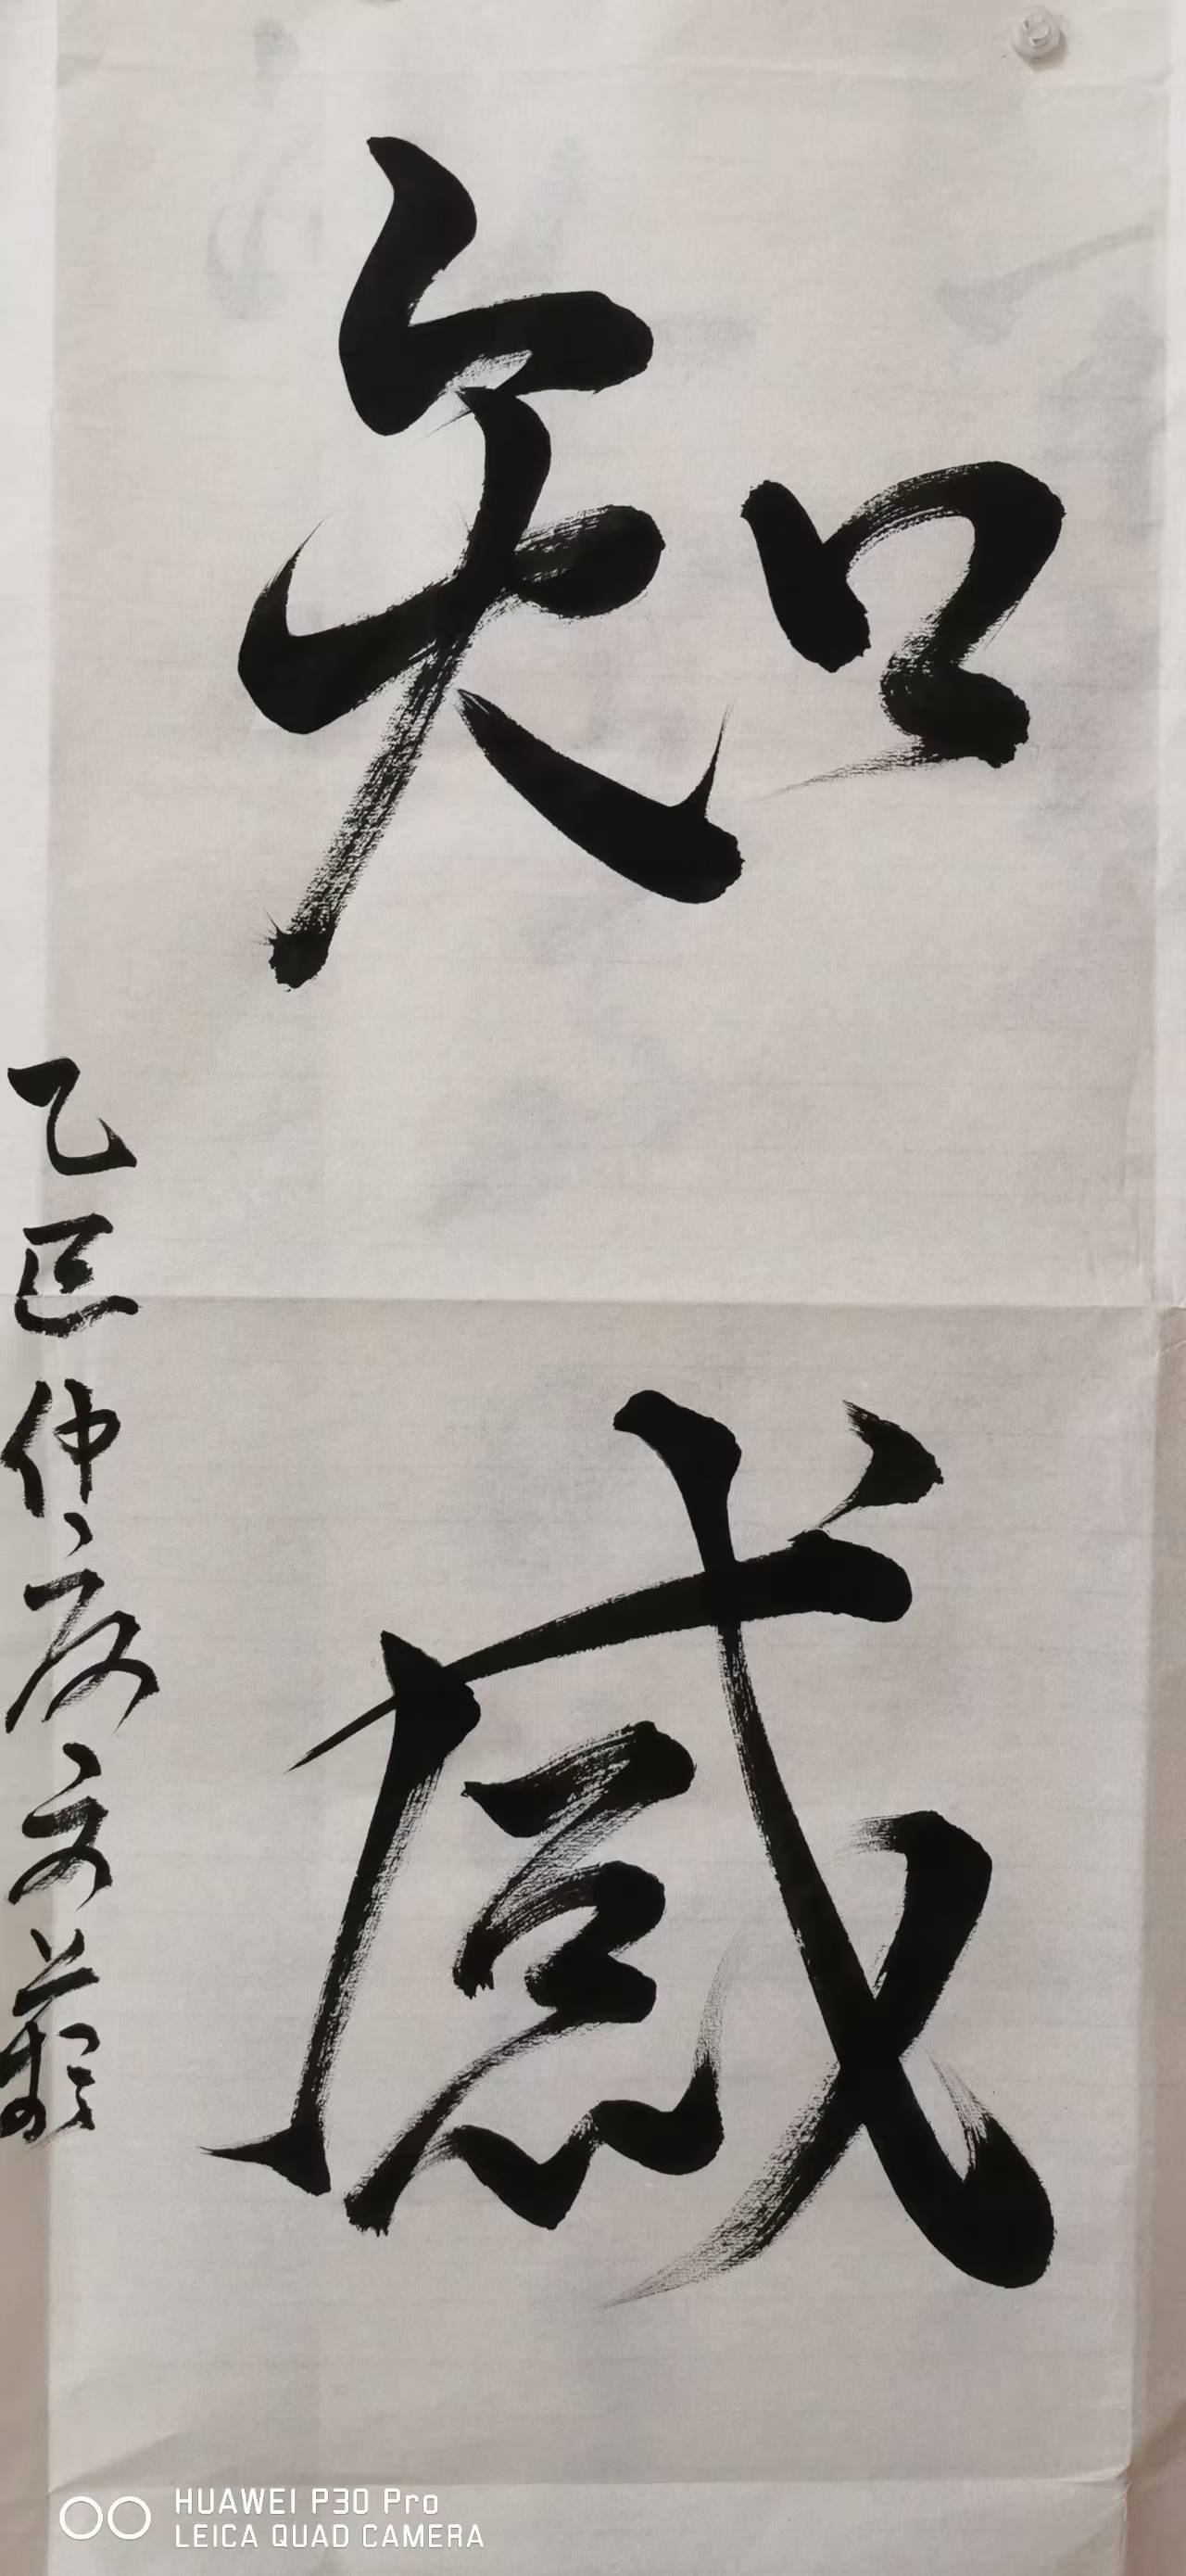 知感
乙巳仲夏文
HUAWEI P30 Pro
LEICA QUAD CAMERA